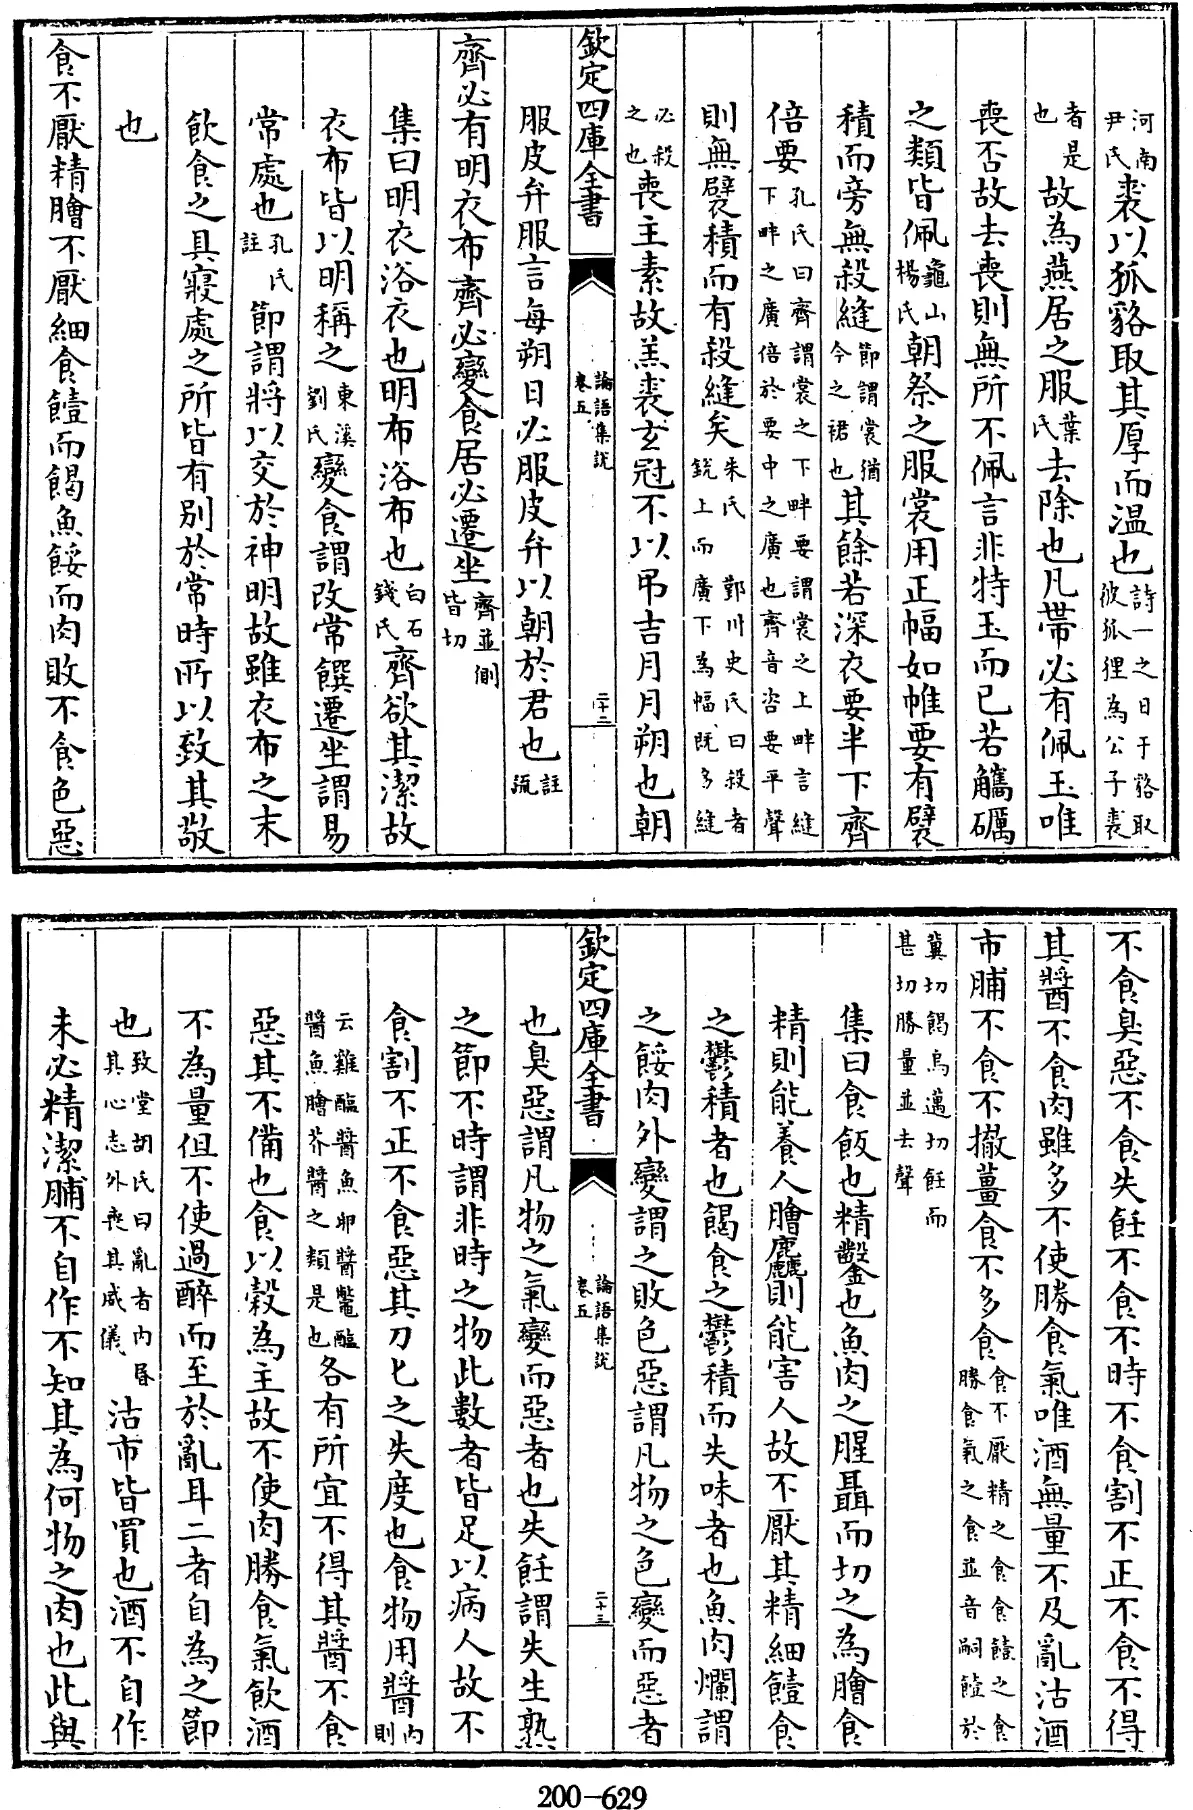 河南尹氏裘以狐貉取其厚而温也詩一之日于貉取彼狐狸為公子裘
者是也故為燕居之服葉氏去除也凡帶必有佩玉唯
喪否故去喪則無所不佩言非特玉而已若觿礪
之類皆佩龜山楊氏朝祭之服裳用正幅如帷要有襞
積而旁無殺縫節謂裳猶今之裙也其餘若深衣要半下齊
倍要孔氏曰齊謂裳之下畔要謂裳之上畔言縫下畔之廣倍於要中之廣也齊音咨要平聲
則無襞積而有殺縫矣朱氏 鄞川史氏曰殺者銳上而廣下為幅既多縫
必殺之也喪主素故羔裘玄冠不以弔吉月月朔也朝
欽定四庫全書
論語集説
卷五
二十二
服皮弁服言每朔日必服皮弁以朝於君也註疏
齊必有明衣布齊必變食居必遷坐齊並側皆切
集曰明衣浴衣也明布浴布也白石錢氏齊欲其潔故
衣布皆以明稱之東溪劉氏變食謂改常饌遷坐謂易
常處也孔氏註節謂將以交於神明故雖衣布之末
飲食之具寢處之所皆有别於常時所以致其敬
也
食不厭精膾不厭細食饐而餲魚餒而肉敗不食色惡
不食臭惡不食失飪不食不時不食割不正不食不得
其醬不食肉雖多不使勝食氣唯酒無量不及亂沽酒
市脯不食不撤薑食不多食食不厭精之食食饐之食勝食氣之食並音嗣饐於
冀切餲烏邁切飪而甚切勝量並去聲
集曰食飯也精鑿也魚肉之腥聶而切之為膾食
精則能養人膾麤則能害人故不厭其精細饐食
之鬱積者也餲食之鬱積而失味者也魚肉爛謂
之餒肉外變謂之敗色惡謂凡物之色變而惡者
欽定四庫全書
論語集説
卷五
二十三
也臭惡謂凡物之氣變而惡者也失飪謂失生熟
之節不時謂非時之物此數者皆足以病人故不
食割不正不食惡其刀匕之失度也食物用醬内則
云雞醢醬魚卵醬鼈醢醬魚膾芥醬之類是也各有所宜不得其醬不食
惡其不備也食以穀為主故不使肉勝食氣飲酒
不為量但不使過醉而至於亂耳二者自為之節
也致堂胡氏曰亂者内昏其心志外喪其威儀沽市皆買也酒不自作
未必精潔脯不自作不知其為何物之肉也此與
200-629